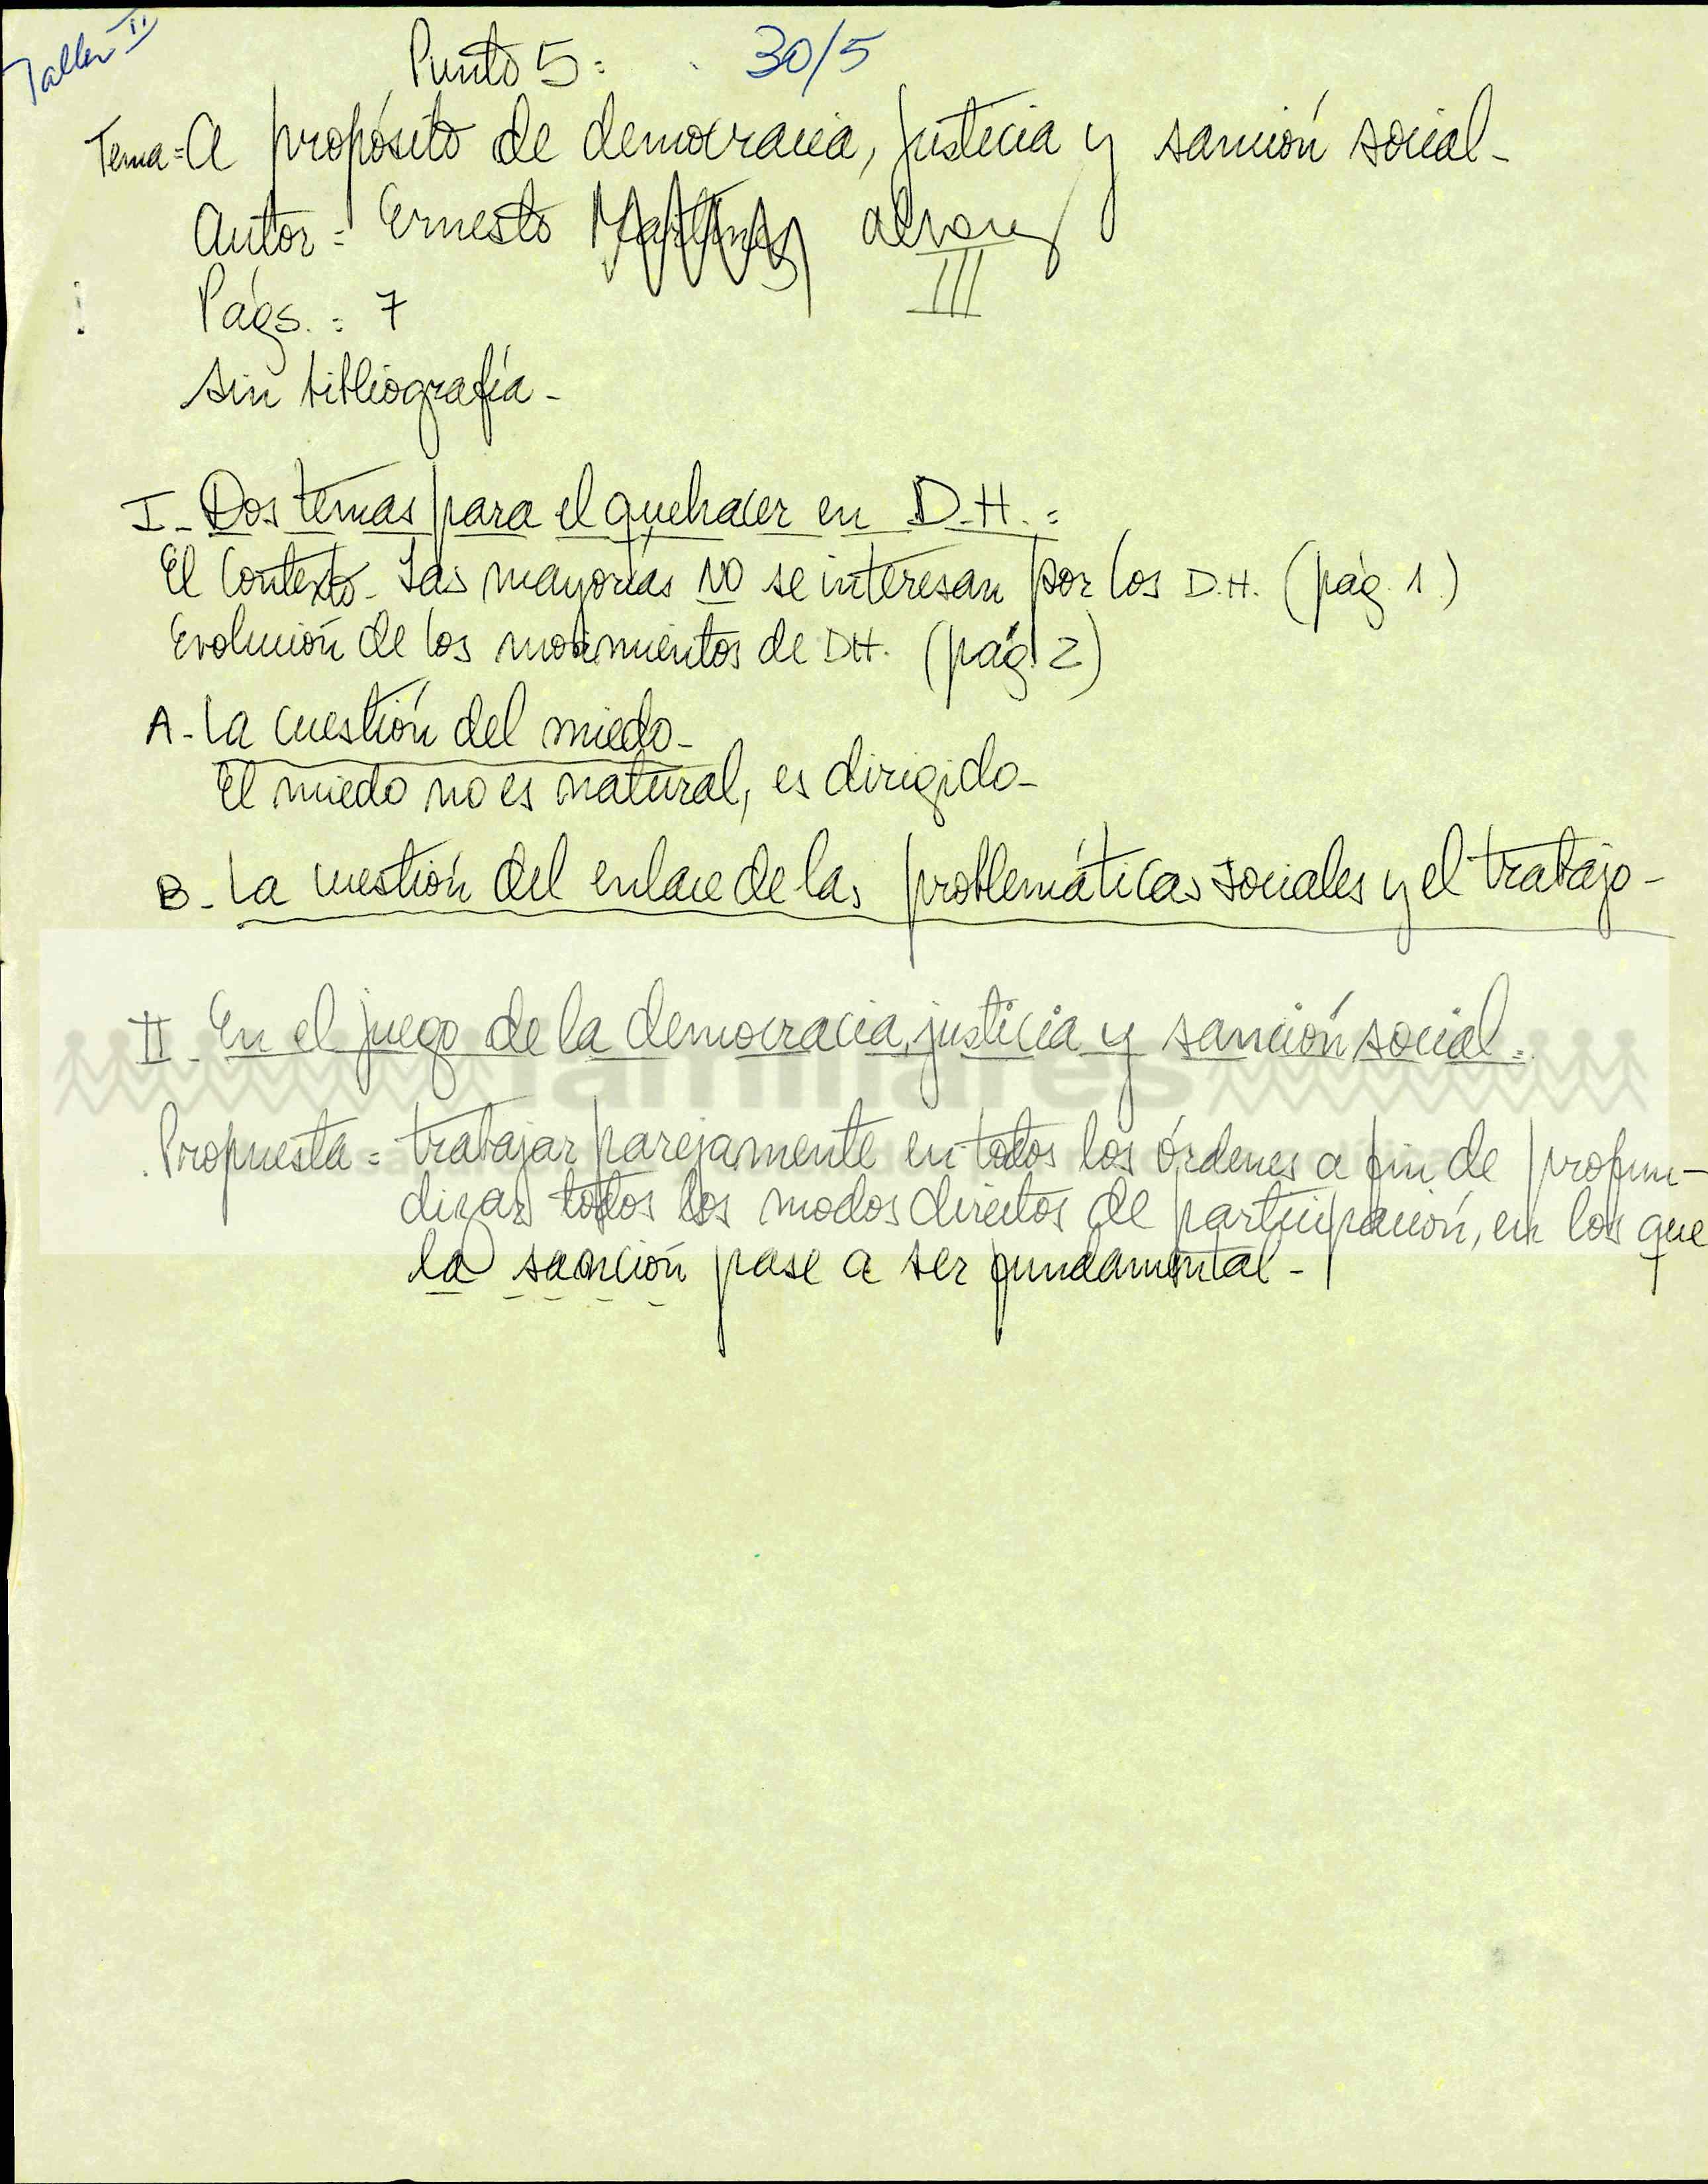 Taller II
Punto 5: 30/5
Tema = A propósito de democracia, justicia y sanción social -
Autor = Ernesto Martínez Alvarez
III
Págs. = 7
Sin bibliografía -
I - Dos temas para el quehacer en D.H. =
El Contexto - Las mayorías NO se interesan por los D.H. (pág. 1)
Evolución de los movimientos de DH. (pág 2)
A - La cuestión del miedo -
El miedo no es natural, es dirigido -
B - La cuestión del enlace de las problemáticas sociales y el trabajo -
II - En el juego de la democracia, justicia y sanción social =
familiares
Propuesta = trabajar parejamente en todos los órdenes a fin de profun-
dizar todos los modos directos de participación, en los que
la sanción pase a ser fundamental -